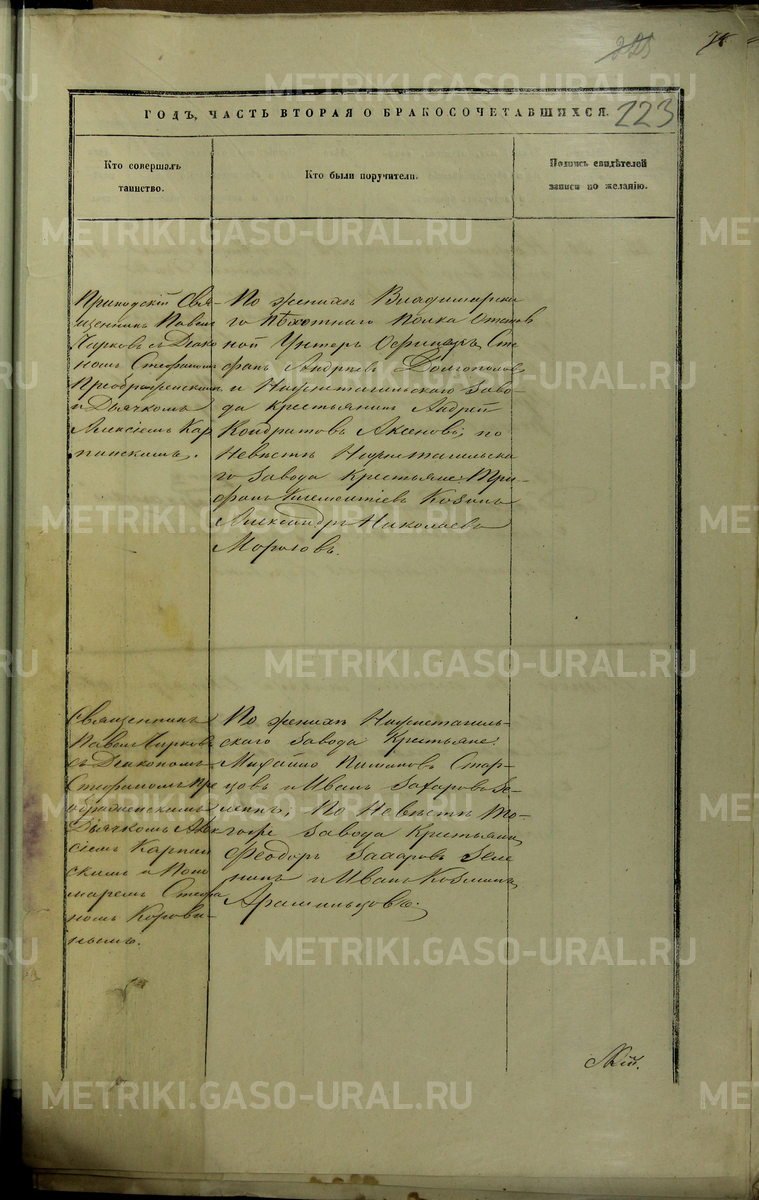 223
ГОДЪ, ЧАСТЬ ВТОРАЯ О БРАКОСОЧЕТАВШИХСЯ.
Кто совершалъ
таинство.
Кто были поручители.
Подпись свидѣтелей
записи по желанію.
Приходскій Свя-
щенникъ Павелъ
Чирковъ съ Діако
номъ Стефаномъ
Преображенскимъ
и Дьячкомъ
Алексіемъ Кар
пинскимъ.
По женихѣ Владимірска
го Пѣхотнаго Полка Отстав
ной Унтеръ Офицеръ Сте
фанъ Андреевъ Долгополовъ
и Нижнетагильскаго Заво-
да крестьянинъ Андрей
Кондратовъ Аксеновъ; по
Невѣстѣ Нижнетагильска
го Завода Крестьяне: Три-
фонъ Климонтіевъ Козинъ
Александръ Николаевъ
Морозовъ.
Священникъ
Павелъ Чирковъ
съ Діакономъ
Стефаномъ Пре
ображенскимъ
Дьячкомъ Алек
сіемъ Карпин
скимъ и Поно
маремъ Стефа
номъ Корови-
нымъ.
По женихѣ Нижнетагиль-
скаго Завода Крестьяне:
Михайло Пимановъ Стар-
цовъ и Иванъ Захаровъ Зе-
ленинъ; По Невѣстѣ То-
гоже Завода Крестьяне
Феодоръ Захаровъ Зеле
нинъ и Иванъ Козминъ
Арамильцовъ.
METRIKI.GASO-URAL.RU